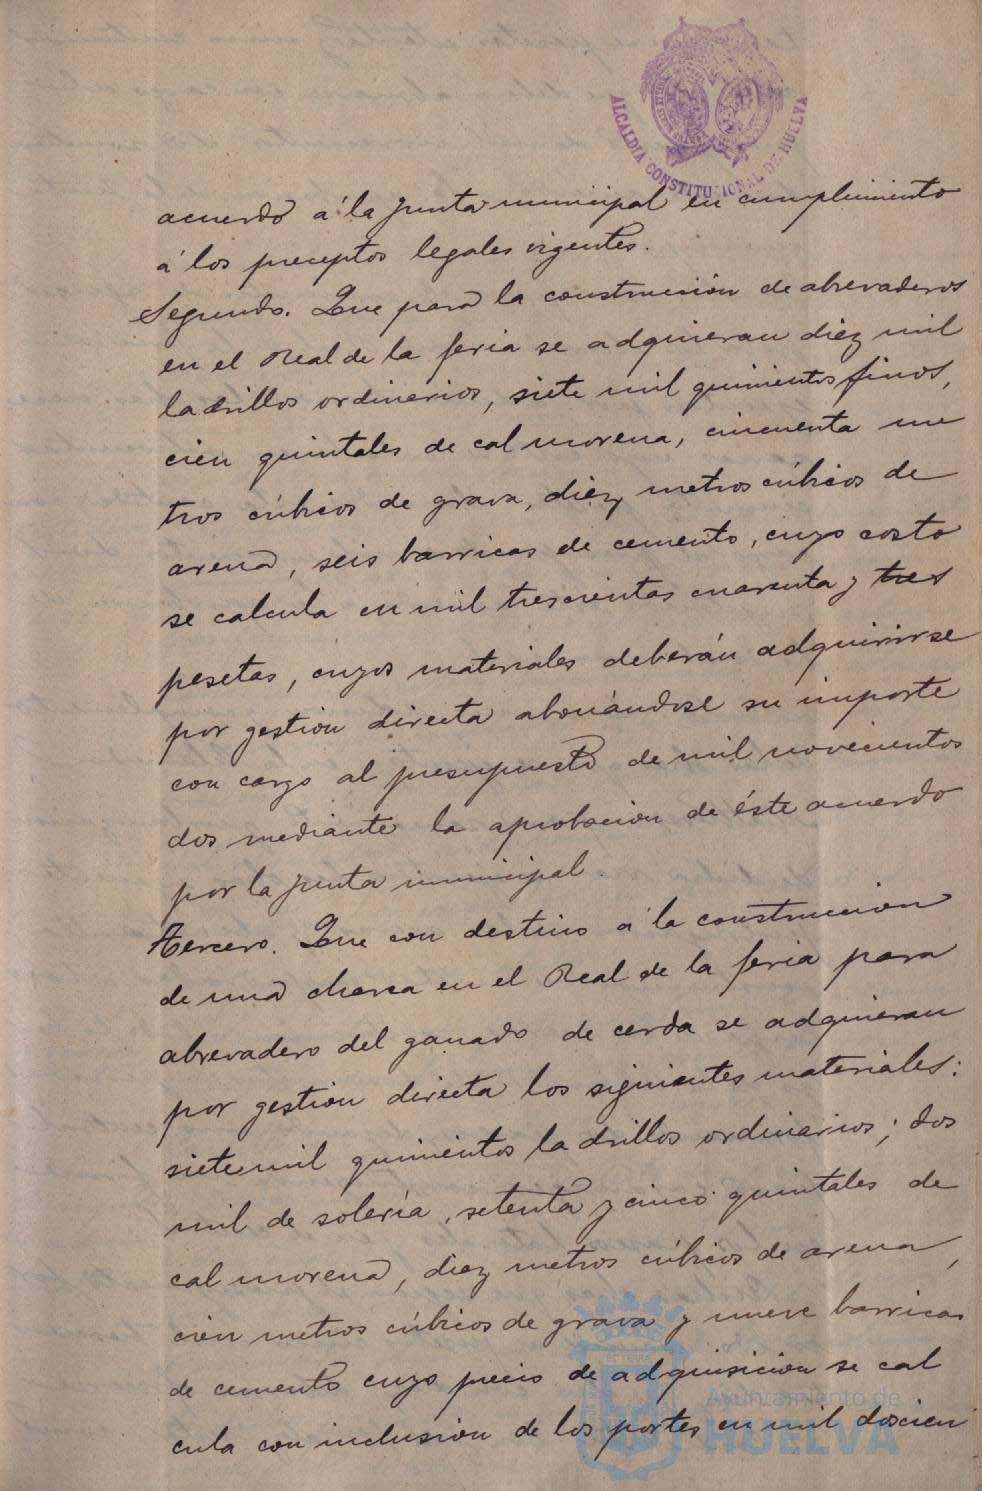 ALCALDIA CONSTITUCIONAL DE HUELVA
acuerdo á la Junta municipal en cumplimiento
á los preceptos legales vigentes.
Segundo. Que para la construcción de abrevaderos
en el Real de la feria se adquieran diez mil
ladrillos ordinarios, siete mil quinientos finos,
cien quintales de cal morena, cincuenta me
tros cúbicos de grava, diez metros cúbicos de
arena, seis barricas de cemento, cuyo costo
se calcula en mil trescientas cuarenta y tres
pesetas, cuyos materiales deberán adquirirse
por gestión directa abonándose su importe
con cargo al presupuesto de mil novecientos
dos mediante la aprobación de éste acuerdo
por la Junta municipal.
Tercero. Que con destino á la construcción
de una charca en el Real de la feria para
abrevadero del ganado de cerda se adquieran
por gestión directa los siguientes materiales:
siete mil quinientos ladrillos ordinarios; dos
mil de solería, setenta y cinco quintales de
cal morena, diez metros cúbicos de arena,
cien metros cúbicos de grava y nueve barricas
de cemento cuyo precio de adquisición se cal
cula con inclusión de los portes en mil doscien
Ayuntamiento de
HUELVA